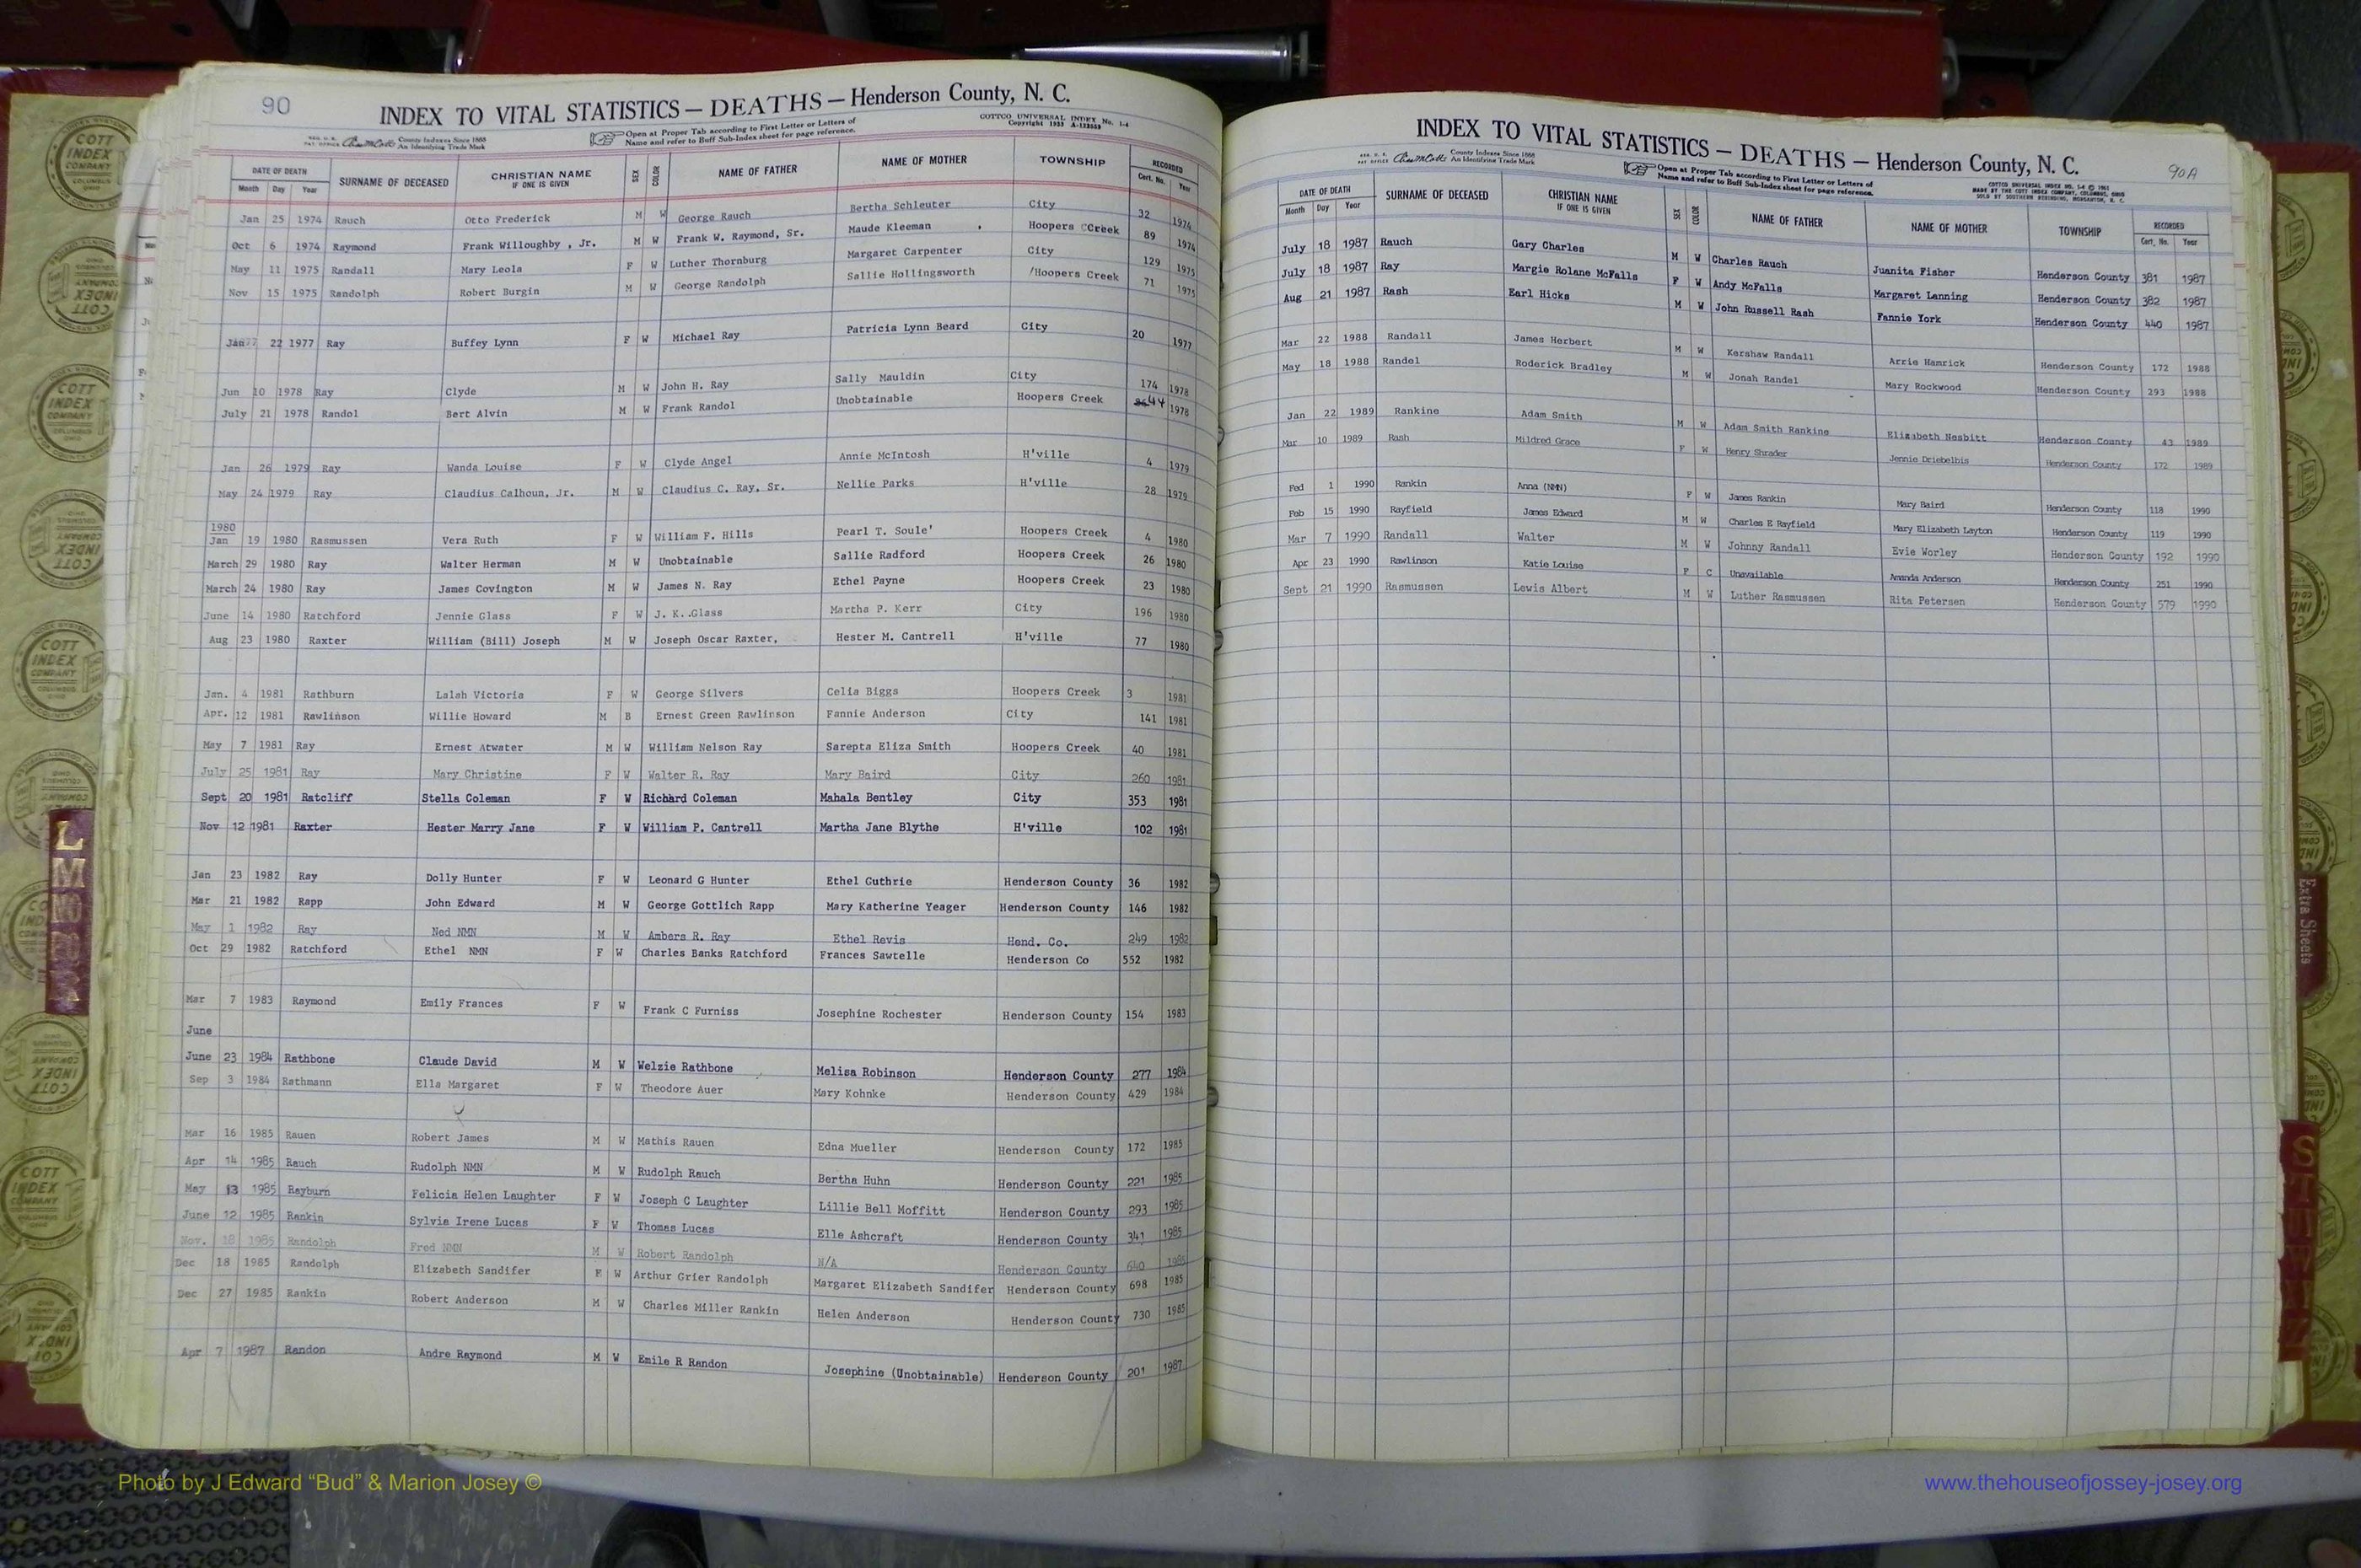 90
INDEX TO VITAL STATISTICS — DEATHS — Henderson County, N. C.
County Indexes Since 1888
An Identifying Trade Mark
Open at Proper Tab according to First Letter or Letters of
Name and refer to Buff Sub-Index sheet for page reference.
COTTCO UNIVERSAL INDEX No. 1-4
DATE OF DEATH SURNAME OF DECEASED CHRISTIAN NAME IF ONE IS GIVEN SEX COLOR NAME OF FATHER NAME OF MOTHER TOWNSHIP RECORDED
Month Day Year Cert. No. Year
Jan 25 1974 Rauch Otto Frederick M W George Rauch Bertha Schleuter City 32 1974
Oct 6 1974 Raymond Frank Willoughby , Jr. M W Frank W. Raymond, Sr. Maude Kleeman Hoopers CCreek 89 1974
May 11 1975 Randall Mary Leola F W Luther Thornburg Margaret Carpenter City 129 1975
Nov 15 1975 Randolph Robert Burgin M W George Randolph Sallie Hollingsworth /Hoopers Creek 71 1975
Jan 22 1977 Ray Buffey Lynn F W Michael Ray Patricia Lynn Beard City 20 1977
Jun 10 1978 Ray Clyde M W John H. Ray Sally Mauldin City 174 1978
July 21 1978 Randol Bert Alvin M W Frank Randol Unobtainable Hoopers Creek 44 1978
Jan 26 1979 Ray Wanda Louise F W Clyde Angel Annie McIntosh H'ville 4 1979
May 24 1979 Ray Claudius Calhoun, Jr. M W Claudius C. Ray, Sr. Nellie Parks H'ville 28 1979
1980
Jan 19 1980 Rasmussen Vera Ruth F W William F. Hills Pearl T. Soule' Hoopers Creek 4 1980
March 29 1980 Ray Walter Herman M W Unobtainable Sallie Radford Hoopers Creek 26 1980
March 24 1980 Ray James Covington M W James N. Ray Ethel Payne Hoopers Creek 23 1980
June 14 1980 Ratchford Jennie Glass F W J. K..Glass Martha P. Kerr City 196 1980
Aug 23 1980 Raxter William (Bill) Joseph M W Joseph Oscar Raxter, Hester M. Cantrell H'ville 77 1980
Jan. 4 1981 Rathburn Lalah Victoria F W George Silvers Celia Biggs Hoopers Creek 3 1981
Apr. 12 1981 Rawlinson Willie Howard M B Ernest Green Rawlinson Fannie Anderson City 141 1981
May 7 1981 Ray Ernest Atwater M W William Nelson Ray Sarepta Eliza Smith Hoopers Creek 40 1981
July 25 1981 Ray Mary Christine F W Walter R. Ray Mary Baird City 260 1981
Sept 20 1981 Ratcliff Stella Coleman F W Richard Coleman Mahala Bentley City 353 1981
Nov 12 1981 Raxter Hester Marry Jane F W William P. Cantrell Martha Jane Blythe H'ville 102 1981
Jan 23 1982 Ray Dolly Hunter F W Leonard G Hunter Ethel Guthrie Henderson County 36 1982
Mar 21 1982 Rapp John Edward M W George Gottlich Rapp Mary Katherine Yeager Henderson County 146 1982
May 1 1982 Ray Ned NMN M W Ambers R. Ray Ethel Revis Hend. Co. 249 1982
Oct 29 1982 Ratchford Ethel NMN F W Charles Banks Ratchford Frances Sawtelle Henderson Co 552 1982
Mar 7 1983 Raymond Emily Frances F W Frank C Furniss Josephine Rochester Henderson County 154 1983
June
June 23 1984 Rathbone Claude David M W Welzie Rathbone Melisa Robinson Henderson County 277 1984
Sep 3 1984 Rathmann Ella Margaret F W Theodore Auer Mary Kohnke Henderson County 429 1984
Mar 16 1985 Rauen Robert James M W Mathis Rauen Edna Mueller Henderson County 172 1985
Apr 14 1985 Rauch Rudolph NMN M W Rudolph Rauch Bertha Huhn Henderson County 221 1985
May 13 1985 Rayburn Felicia Helen Laughter F W Joseph C Laughter Lillie Bell Moffitt Henderson County 293 1985
June 12 1985 Rankin Sylvia Irene Lucas F W Thomas Lucas Elle Ashcraft Henderson County 341 1985
Nov. 18 1985 Randolph Fred NMN M W Robert Randolph N/A Henderson County 640 1985
Dec 18 1985 Randolph Elizabeth Sandifer F W Arthur Grier Randolph Margaret Elizabeth Sandifer Henderson County 698 1985
Dec 27 1985 Rankin Robert Anderson M W Charles Miller Rankin Helen Anderson Henderson County 730 1985
Apr 7 1987 Randon Andre Raymond M W Emile R Randon Josephine (Unobtainable) Henderson County 201 1987
INDEX TO VITAL STATISTICS — DEATHS — Henderson County, N. C.
90A
County Indexes Since 1888
An Identifying Trade Mark
Open at Proper Tab according to First Letter or Letters of
Name and refer to Buff Sub-Index sheet for page reference.
DATE OF DEATH SURNAME OF DECEASED CHRISTIAN NAME IF ONE IS GIVEN SEX COLOR NAME OF FATHER NAME OF MOTHER TOWNSHIP RECORDED
Month Day Year Cert. No. Year
July 18 1987 Rauch Gary Charles M W Charles Rauch Juanita Fisher Henderson County 381 1987
July 18 1987 Ray Margie Rolane McFalls F W Andy McFalls Margaret Lanning Henderson County 382 1987
Aug 21 1987 Rash Earl Hicks M W John Russell Rash Fannie York Henderson County 440 1987
Mar 22 1988 Randall James Herbert M W Kershaw Randall Arrie Hamrick Henderson County 172 1988
May 18 1988 Randel Roderick Bradley M W Jonah Randel Mary Rockwood Henderson County 293 1988
Jan 22 1989 Rankine Adam Smith M W Adam Smith Rankine Elizabeth Nesbitt Henderson County 43 1989
Mar 10 1989 Rash Mildred Grace F W Henry Shrader Jennie Driebelbis Henderson County 172 1989
Fed 1 1990 Rankin Anna (NMN) F W James Rankin Mary Baird Henderson County 118 1990
Feb 15 1990 Rayfield James Edward M W Charles E Rayfield Mary Elizabeth Layton Henderson County 119 1990
Mar 7 1990 Randall Walter M W Johnny Randall Evie Worley Henderson County 192 1990
Apr 23 1990 Rawlinson Katie Louise F C Unavailable Amanda Anderson Henderson County 251 1990
Sept 21 1990 Rasmussen Lewis Albert M W Luther Rasmussen Rita Petersen Henderson County 579 1990
L
M
Extra Sheets
S
T
COTT INDEX COMPANY
Photo by J Edward “Bud” & Marion Josey ©
www.thehouseofjossey-josey.org